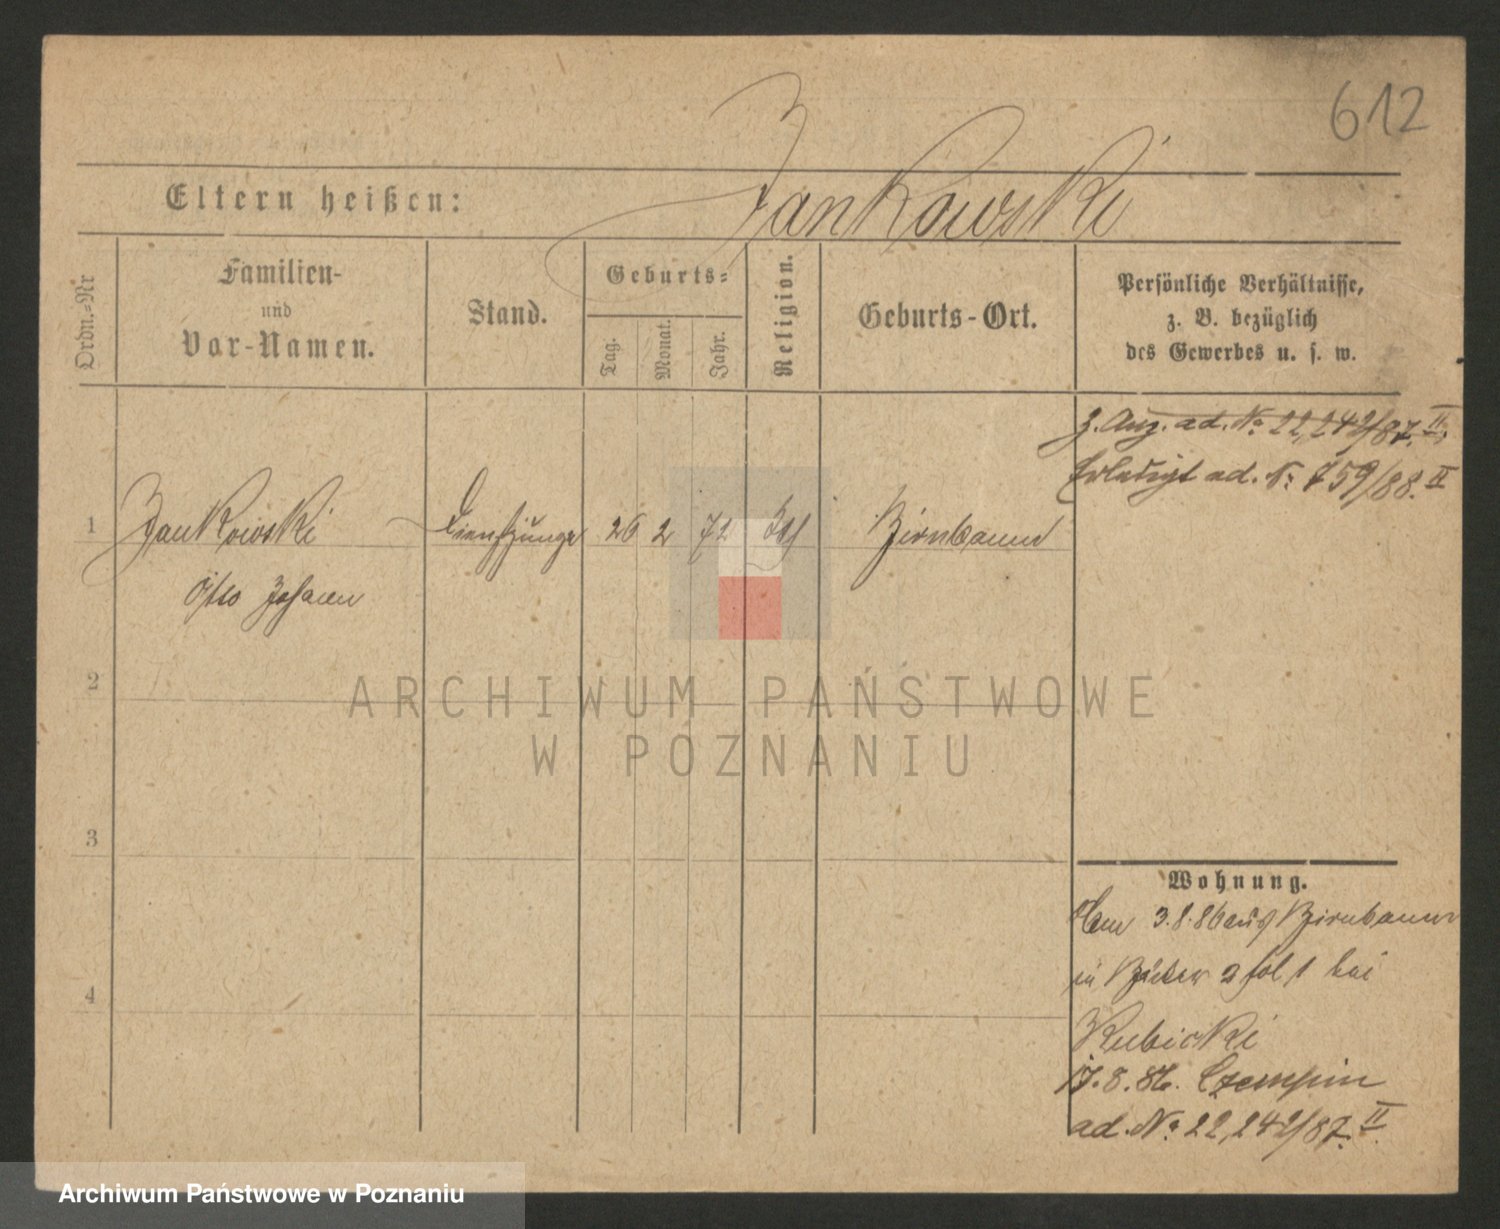 612
Eltern heißen: Jankowski
Ordn.=Nr
Familien-
und
Vor-Namen.
Stand.
Geburts=
Tag.
Monat.
Jahr.
Religion.
Geburts-Ort.
Persönliche Verhältnisse,
z. B. bezüglich
des Gewerbes u. s. w.
z. Anz. ad. No 22,242/87. II
Erledigt ad. No 759/88. II
1 Jankowski Dienstjunge 26 2 72 Birnbaum
Otto Johann
2
3
4
ARCHIWUM PAŃSTWOWE
W POZNANIU
Wohnung.
3.8.86 aus Birnbaum
in 2 bei
Kubicki
17.8.86. Czempin
ad. No 22,242/87. II
Archiwum Państwowe w Poznaniu